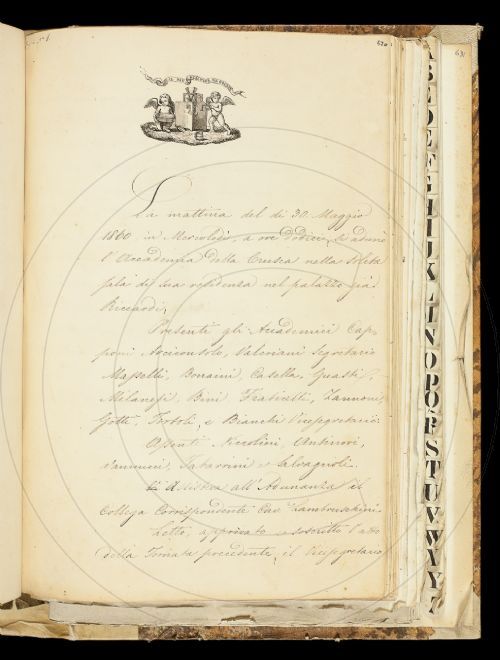 630
631
La mattina del dì 30. Maggio
1860 in Mercoledì, a ore dodici, si adunò
l'Accademia della Crusca nella solita
sala di sua residenza nel palazzo già
Riccardi.
Presenti gli Accademici Cap-
poni Arciconsolo, Valeriani Segretario
Masselli, Bonaini, Casella, Guasti,
Milanesi, Bini, Fraticelli, Zannoni,
Gotti, Tortoli, e Bianchi Vicesegretario.
Assenti Niccolini, Antinori,
Vannucci, Tabarrini e Salvagnoli.
Assisteva all'Adunanza il
Collega Corrispondente Cav. Lambruschini.
Letto, approvato e soscritto l'atto
della Tornata precedente, il Vicesegretario
A
B
C
D
E
F
G
H
I
J
K
L
M
N
O
P
Q
R
S
T
U
V
W
X
Y
Z